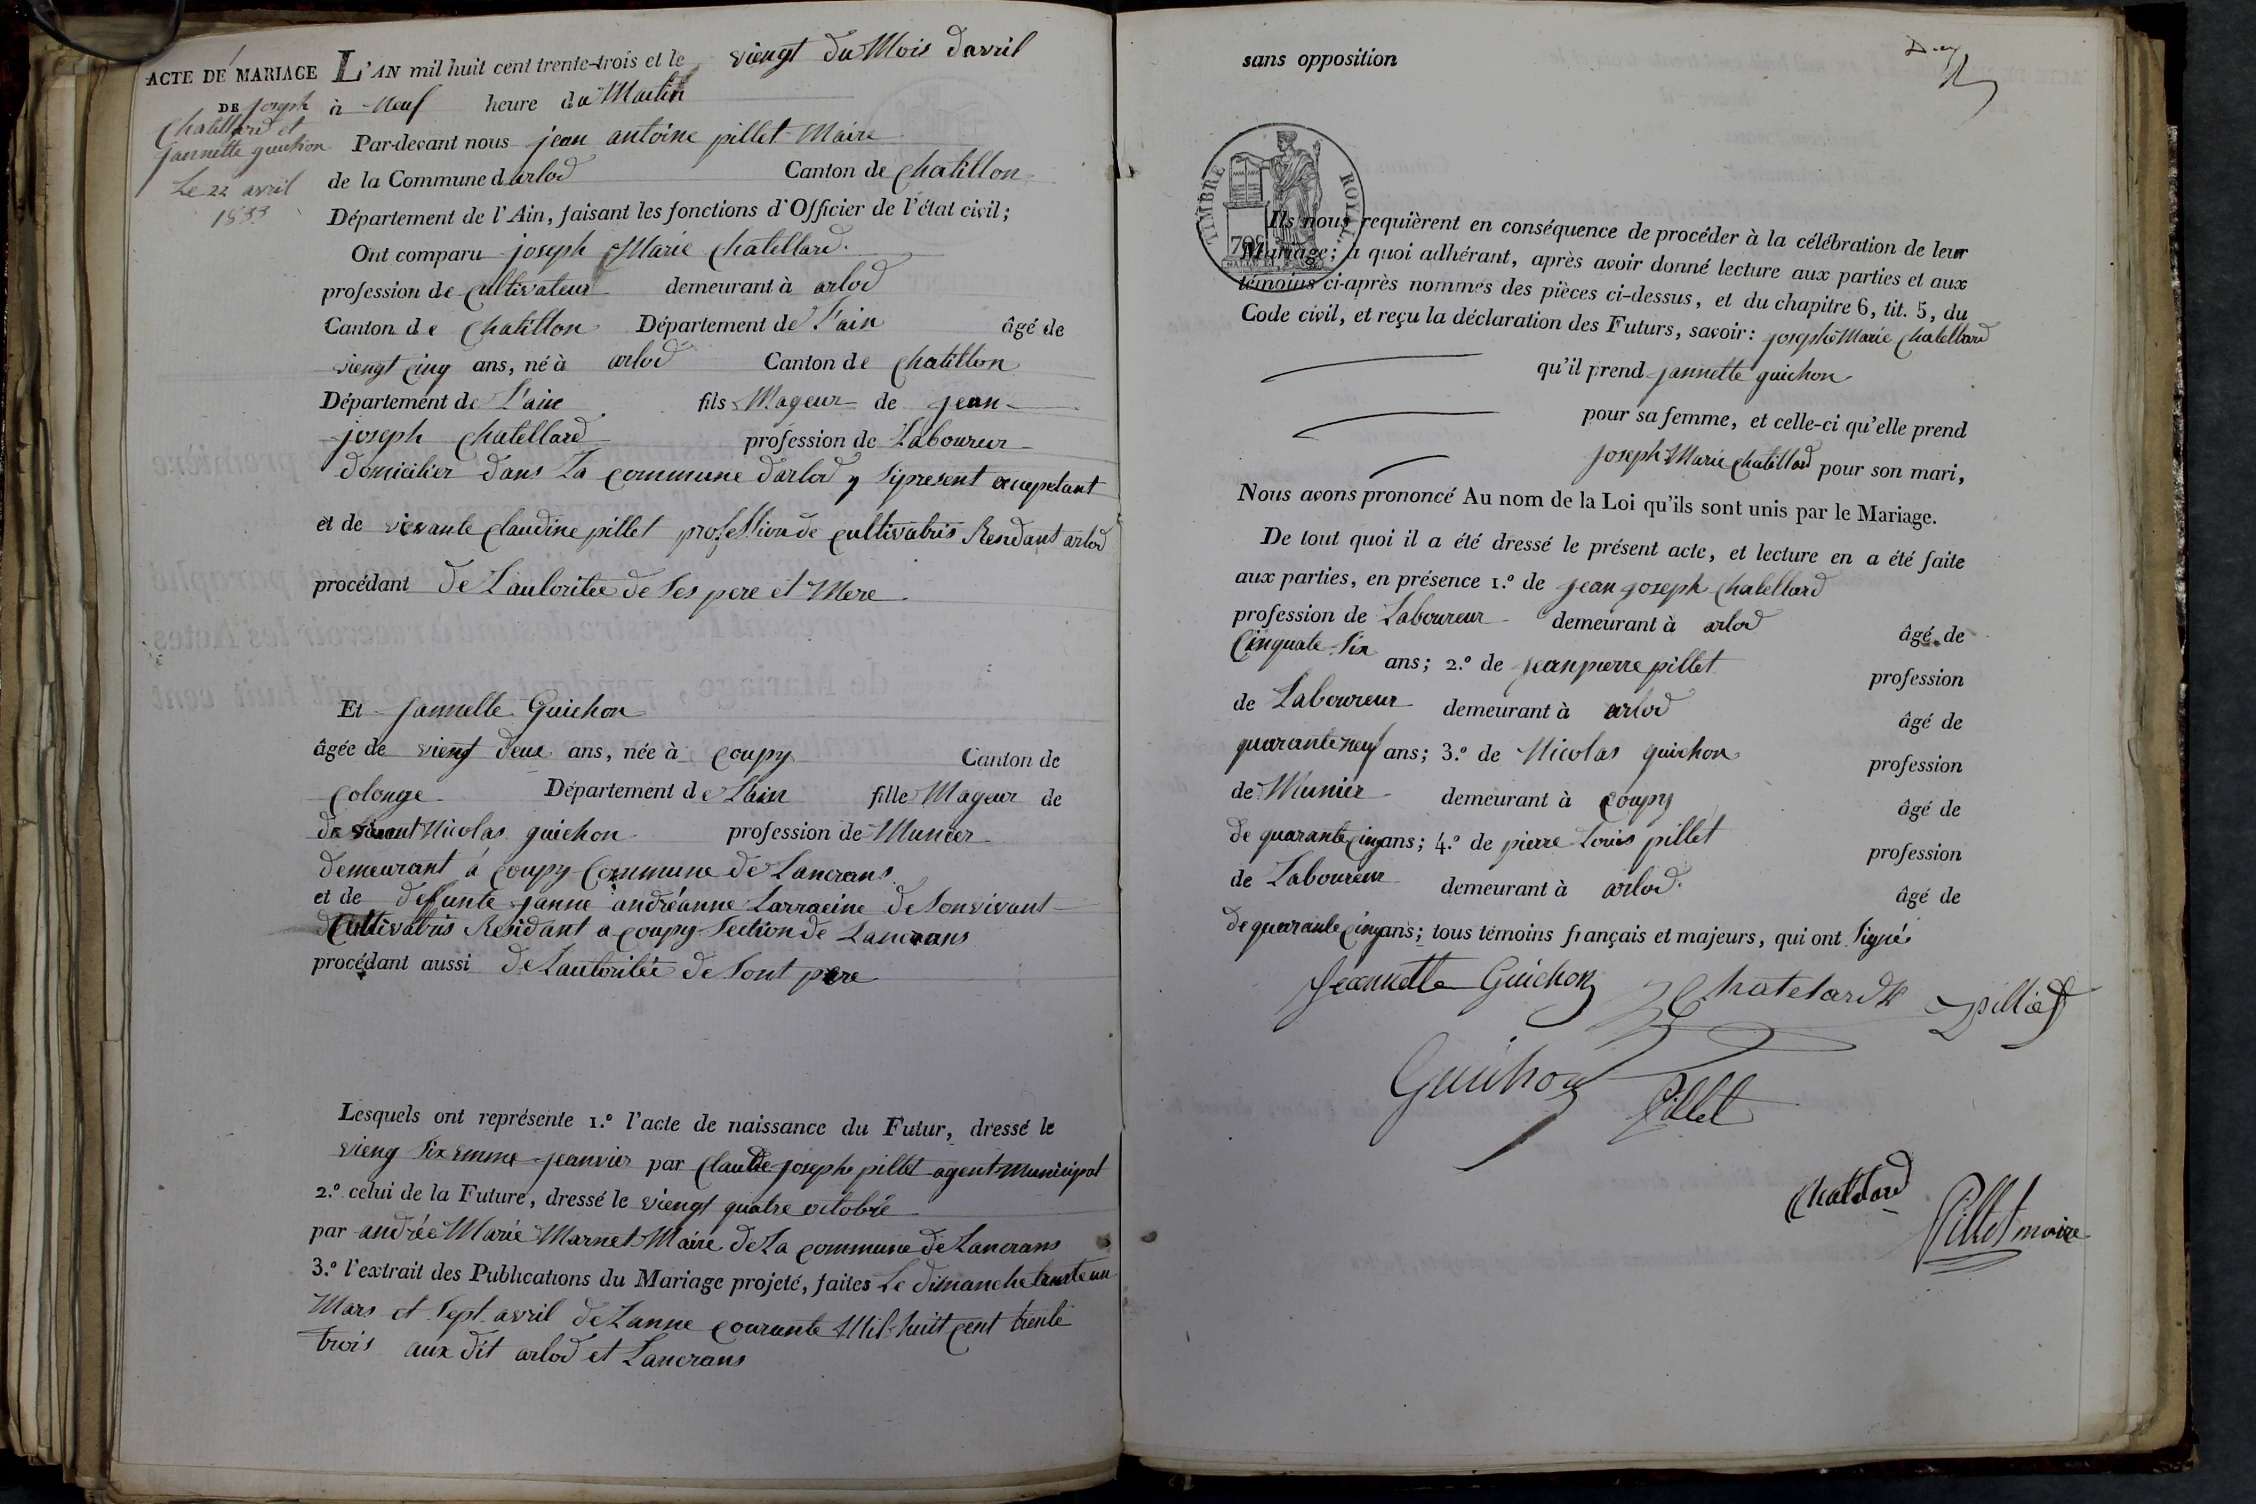 ACTE DE MARIAGE
DE joseph
Chatellard et
jannette guichon
Le 22 avril
1833
L'AN mil huit cent trente-trois et le viengt du Mois davril
à Neuf heure du Matin
Par-devant nous jean antoine pillet Maire
de la Commune darlod Canton de Chatillon
Département de l'Ain, faisant les fonctions d'Officier de l'état civil;
Ont comparu joseph Marie Chatellard
profession de Cultivateur demeurant à arlod
Canton de Chatillon Département de L'ain âgé de
viengt cinq ans, né à arlod Canton de Chatillon
Département de L'ain fils Mageur de jean
joseph Chatellard profession de Laboureur
domicilier dans La commune darlod y Sipresent
et de vivante Claudine pillet profession de Cultivatris Rendant arlod
procédant de Lautoritée de Ses pere et Mere
Et jannette Guichon
âgée de viengt deux ans, née à Coupy Canton de
Colonge Département de Lain fille Mageur de
Nicolas guichon profession de Munier
demeurant à Coupy Commune de Lancrans
et de defunte janne andréanne Larracine de Sonvivant
Cultivatris Residant a coupy Section de Lancrans
procédant aussi de Lautoritée de Sont pere
Lesquels ont représenté 1.º l'acte de naissance du Futur, dressé le
vieng Sixemme jeanvier par Claude joseph pillet agent Municipal
2.º celui de la Future, dressé le viengt quatre octobre
par andrée Marie Marnet Maire de La commune de Lancrans
3.º l'extrait des Publications du Mariage projeté, faites Le dimanche trenteun
Mars et Sept avril de Lanne courante Mil huit cent trente
trois aux dit arlod et Lancrans
sans opposition
TIMBRE ROYAL
Ils nous requièrent en conséquence de procéder à la célébration de leur
Mariage; à quoi adhérant, après avoir donné lecture aux parties et aux
témoins ci-après nommés des pièces ci-dessus, et du chapitre 6, tit. 5, du
Code civil, et reçu la déclaration des Futurs, savoir: joseph Marie Chatellard
qu'il prend jannette guichon
pour sa femme, et celle-ci qu'elle prend
joseph Marie Chatillard pour son mari,
Nous avons prononcé Au nom de la Loi qu'ils sont unis par le Mariage.
De tout quoi il a été dressé le présent acte, et lecture en a été faite
aux parties, en présence 1.º de jean joseph Chatellard
profession de Laboureur demeurant à arlod âgé de
Cinquate Six ans; 2.º de jean pierre pillet profession
de Laboureur demeurant à arlod âgé de
quarante neuf ans; 3.º de Nicolas guichon profession
de Munier demeurant à Coupy âgé de
de quarante cinq ans; 4.º de pierre Louis pillet profession
de Laboureur demeurant à arlod âgé de
de quarante cinq ans; tous témoins français et majeurs, qui ont Signés
Jeannette Guichon Chatelard Pillet
Guichon
Pillet
Chatelard
Pillet maire